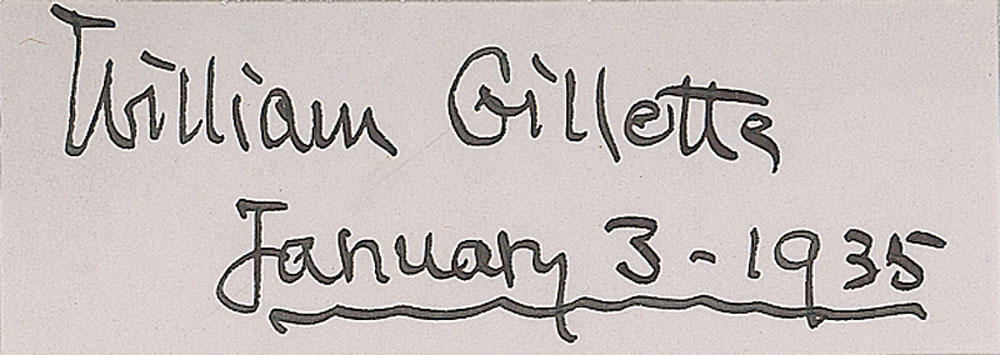 William Gillette
January 3 - 1935